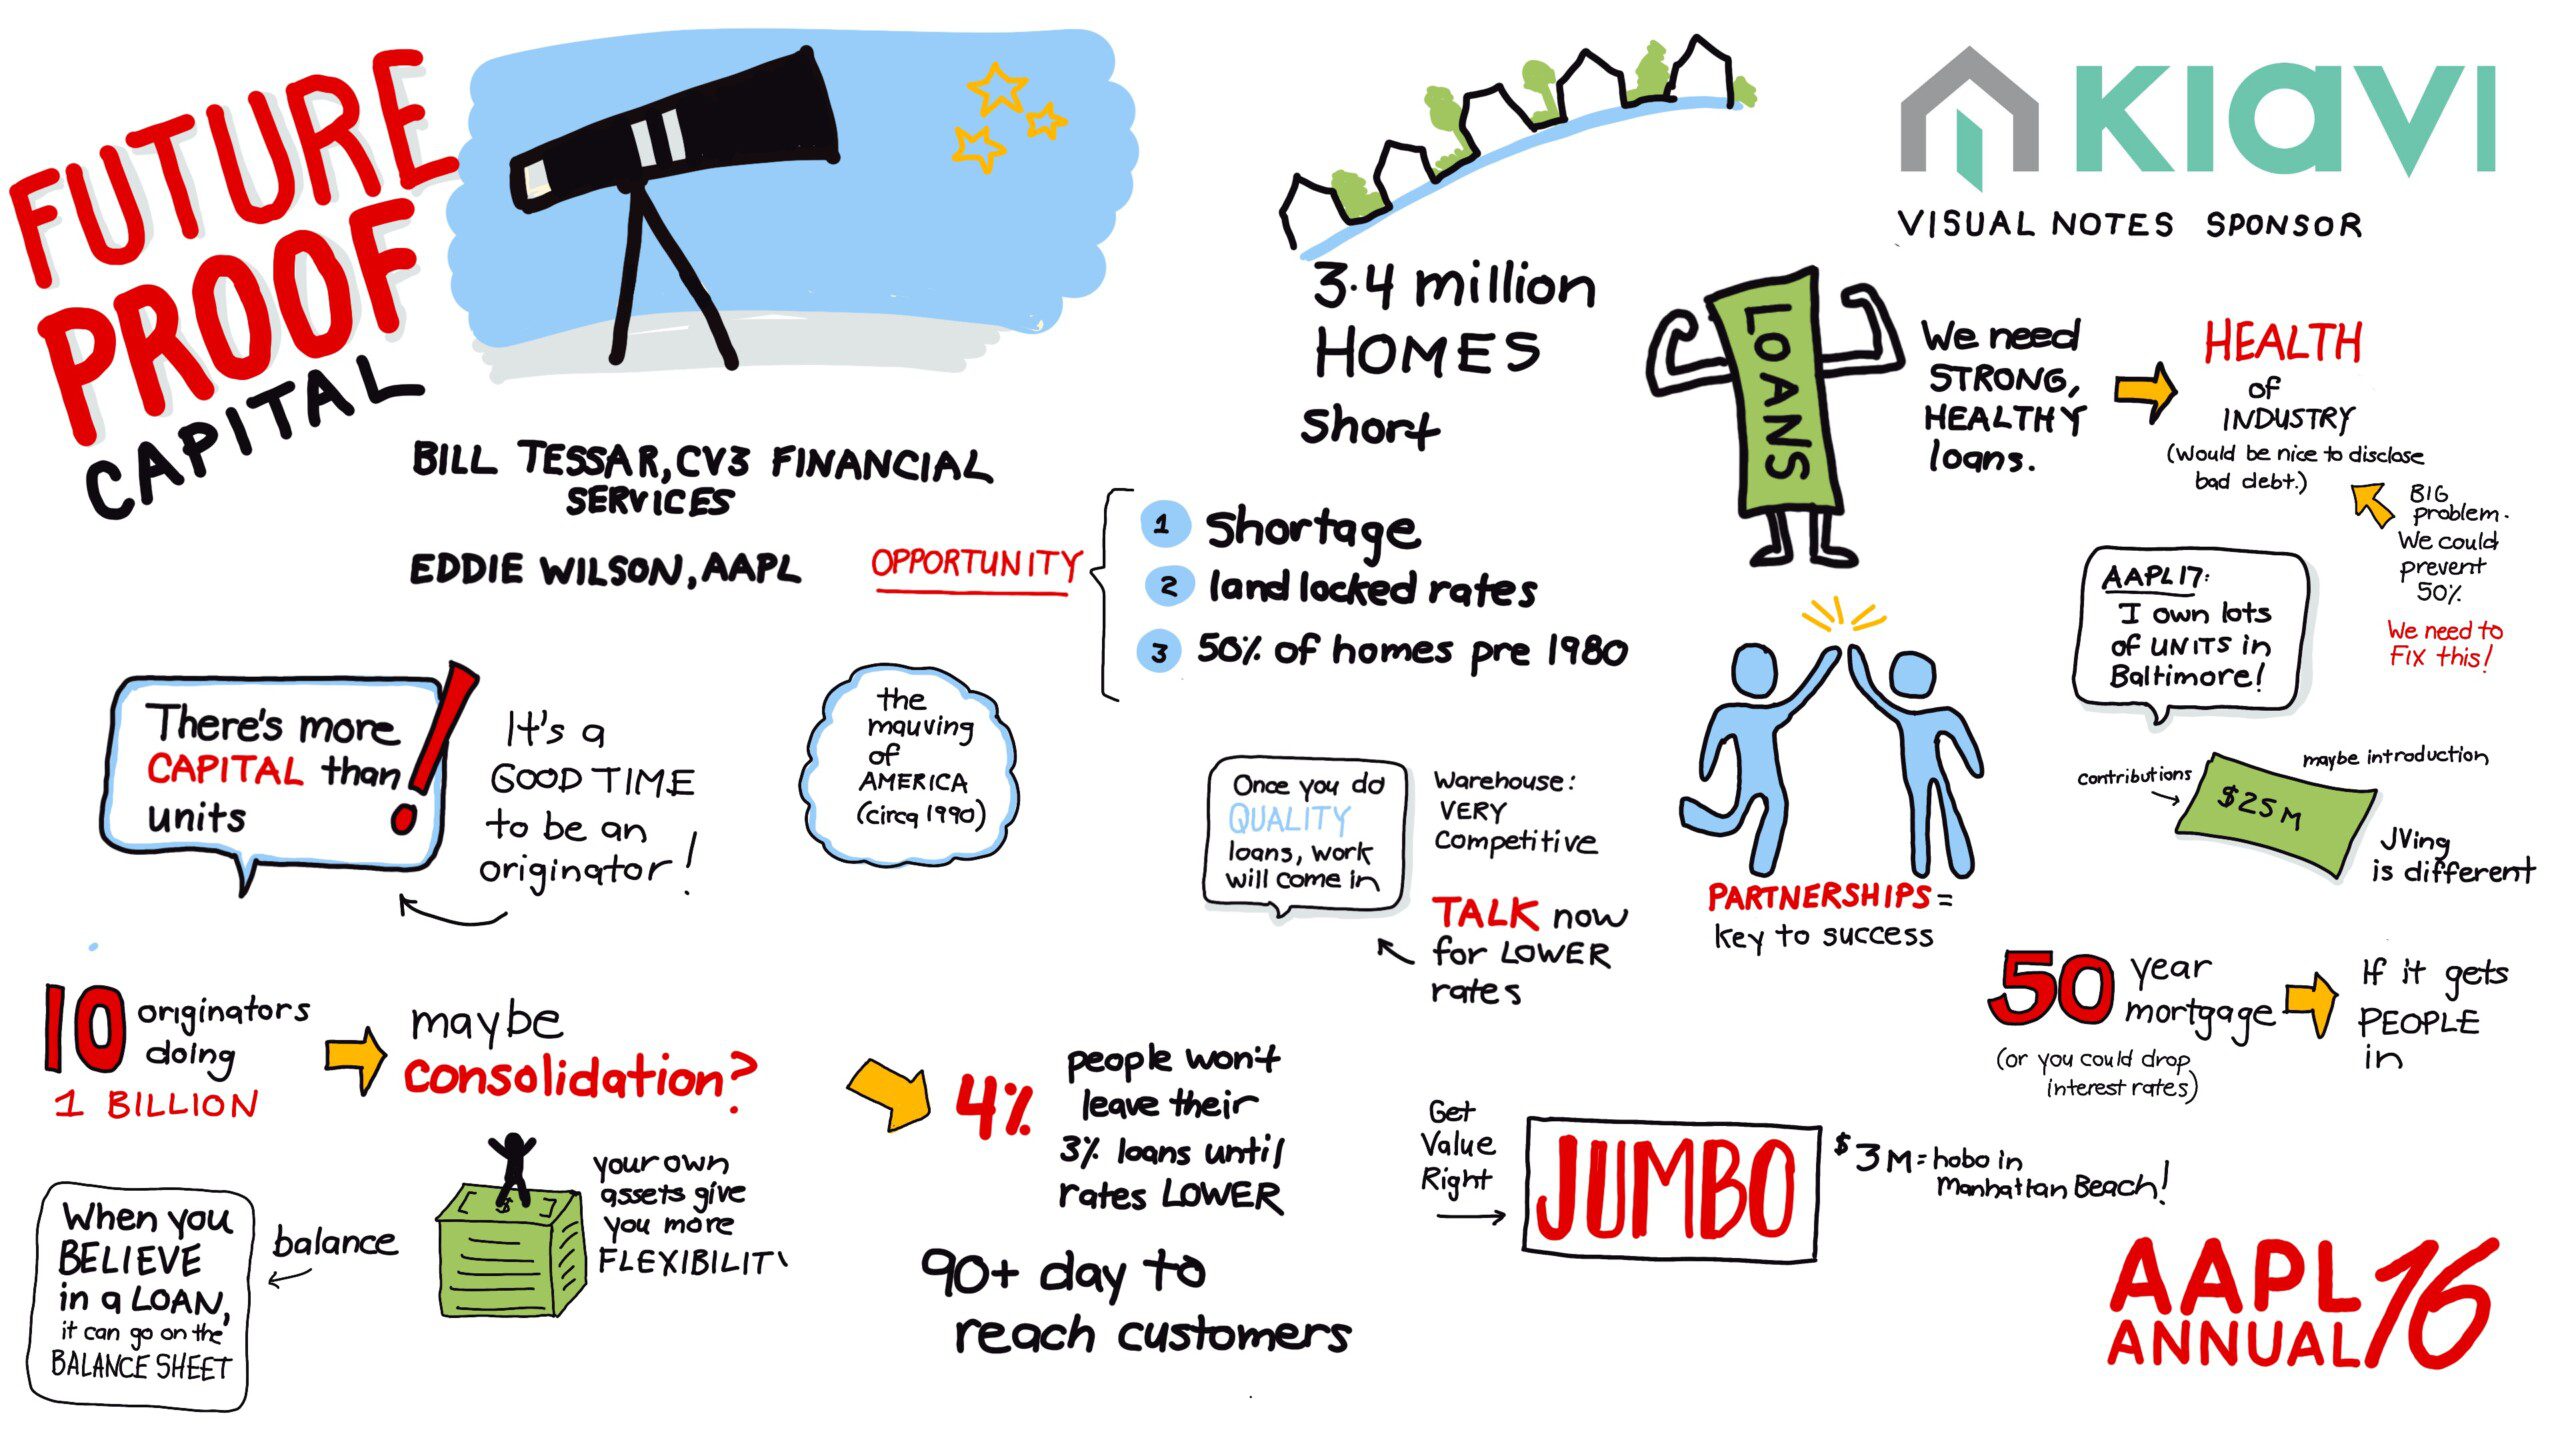 FUTURE
PROOF
CAPITAL
BILL TESSAR, CV3 FINANCIAL
SERVICES
EDDIE WILSON, AAPL
3.4 million
HOMES
short
KIAVI
VISUAL NOTES SPONSOR
LOANS
We need
STRONG,
HEALTHY
loans.
HEALTH
of
INDUSTRY
(Would be nice to disclose
bad debt.)
BIG
problem.
We could
prevent
50%
We need to
FIX this!
OPPORTUNITY
1 Shortage
2 land locked rates
3 50% of homes pre 1980
AAPL17:
I own lots
of UNITS in
Baltimore!
There's more
CAPITAL than
units
!
It's a
GOOD TIME
to be an
originator!
the
mauving
of
AMERICA
(circa 1990)
Once you do
QUALITY
loans, work
will come in
Warehouse:
VERY
Competitive
TALK now
for LOWER
rates
PARTNERSHIPS =
key to success
contributions
$25M
maybe introduction
JVing
is different
10 originators
doing
1 BILLION
maybe
consolidation?
4%
people won't
leave their
3% loans until
rates LOWER
90+ day to
reach customers
50 year
mortgage
(or you could drop
interest rates)
If it gets
PEOPLE
in
When you
BELIEVE
in a LOAN,
it can go on the
BALANCE SHEET
balance
$
your own
assets give
you more
FLEXIBILITY
Get
Value
Right
JUMBO
$3M = hobo in
Manhattan Beach!
AAPL
ANNUAL 16